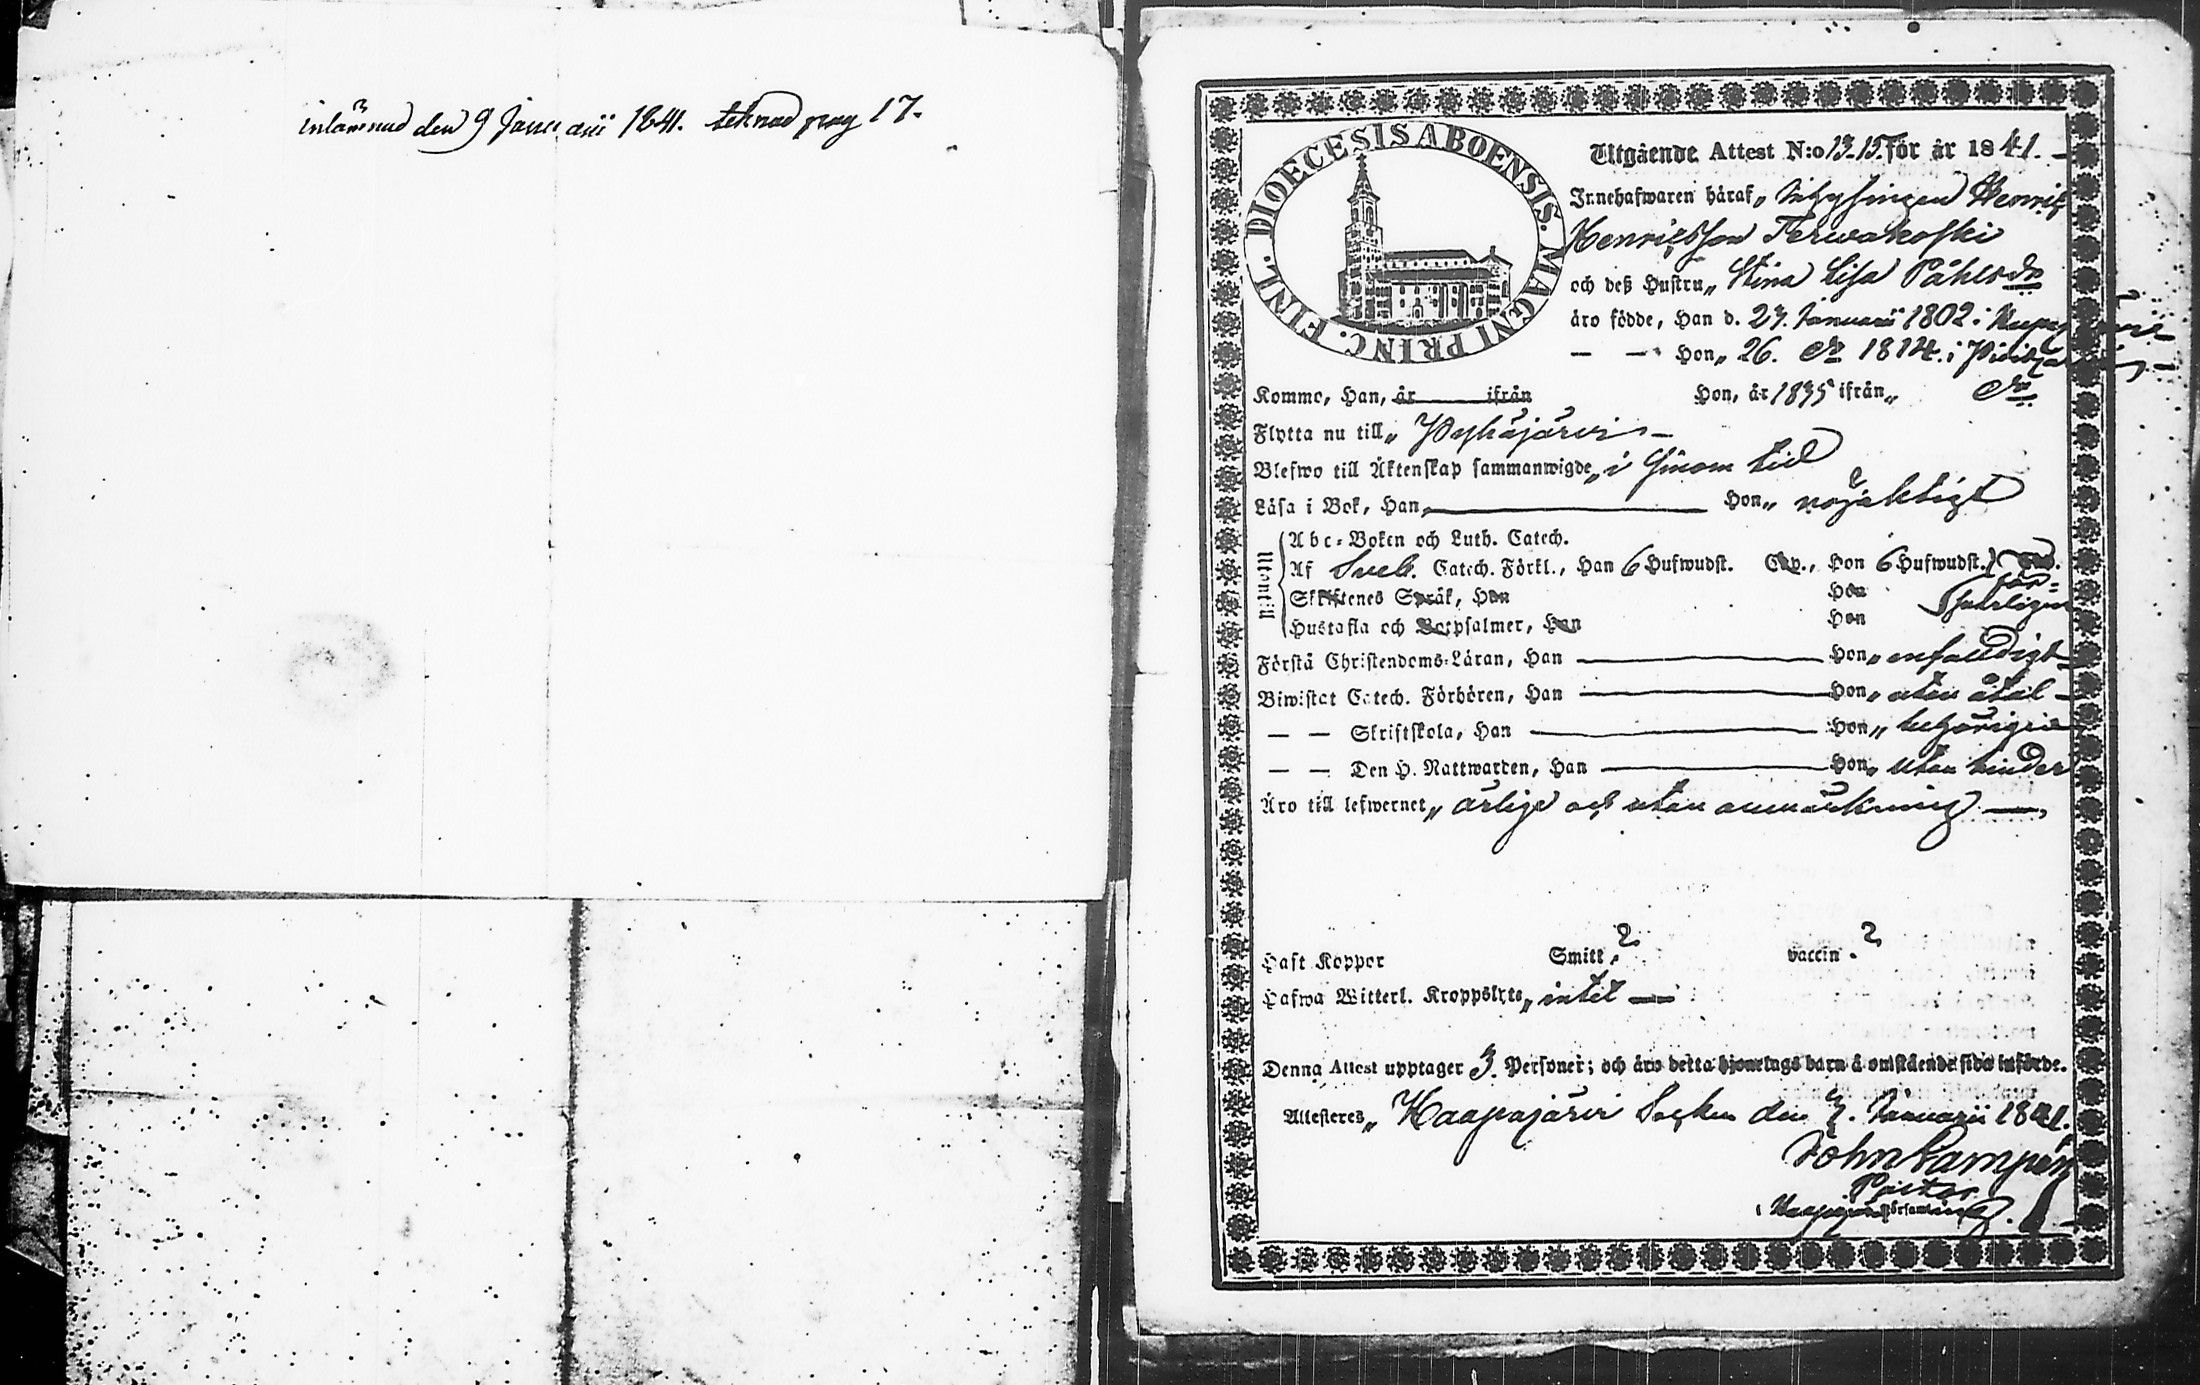 inlämnad den 9 Januarii 1841. teknad pag 17.
DIOECESIS ABOENSIS. MAGNI PRINC. FINL.
Utgående Attest N:o 13-15. för år 1841.
Innehafwaren häraf, Inhysingen Henrik
Henriksson Terwakoski
och deß Hustru, Stina Lisa Påhlsdr
äro födde, Han d. 27. Januarii 1802 i
— — Hon, 26. do 1814. i Pihtipudas
Komme, Han, år ifrån Hon, år 1835 ifrån, do
Flytta nu till, Pyhäjärvi
Blefwo till Äktenskap sammanwigde, i sinom tid
Läsa i Bok, Han, Hon, nöjaktigt
Utantill
Abc-Boken och Luth. Catech.
Af Sveb. Catech. Förkl., Han 6 Hufwudst. Cap., Hon 6 Hufwudst.
Skriftenes Språk, Han Hon för-
Hustafla och Botpsalmer, Han Hon swarligen
Förstå Christendoms-Läran, Han Hon, enfaldigt
Biwistat Catech. Förhören, Han Hon, utan åtal
— — Skriftskola, Han Hon, behörigen
— — Den H. Nattwarden, Han Hon, utan hinder
Äro till lefwernet, ärlige och utan anmärkning
Haft Koppor Smitt, ? vaccin. ?
Hafwa Witterl. Kroppslyte, intet
Denna Attest upptager 3. Personer; och äro detta hjonelags barn å omstående sida införde.
Attesteres, Haapajärvi Socken den 7. Januarii 1841.
John Lampén
Pastor
i församling.